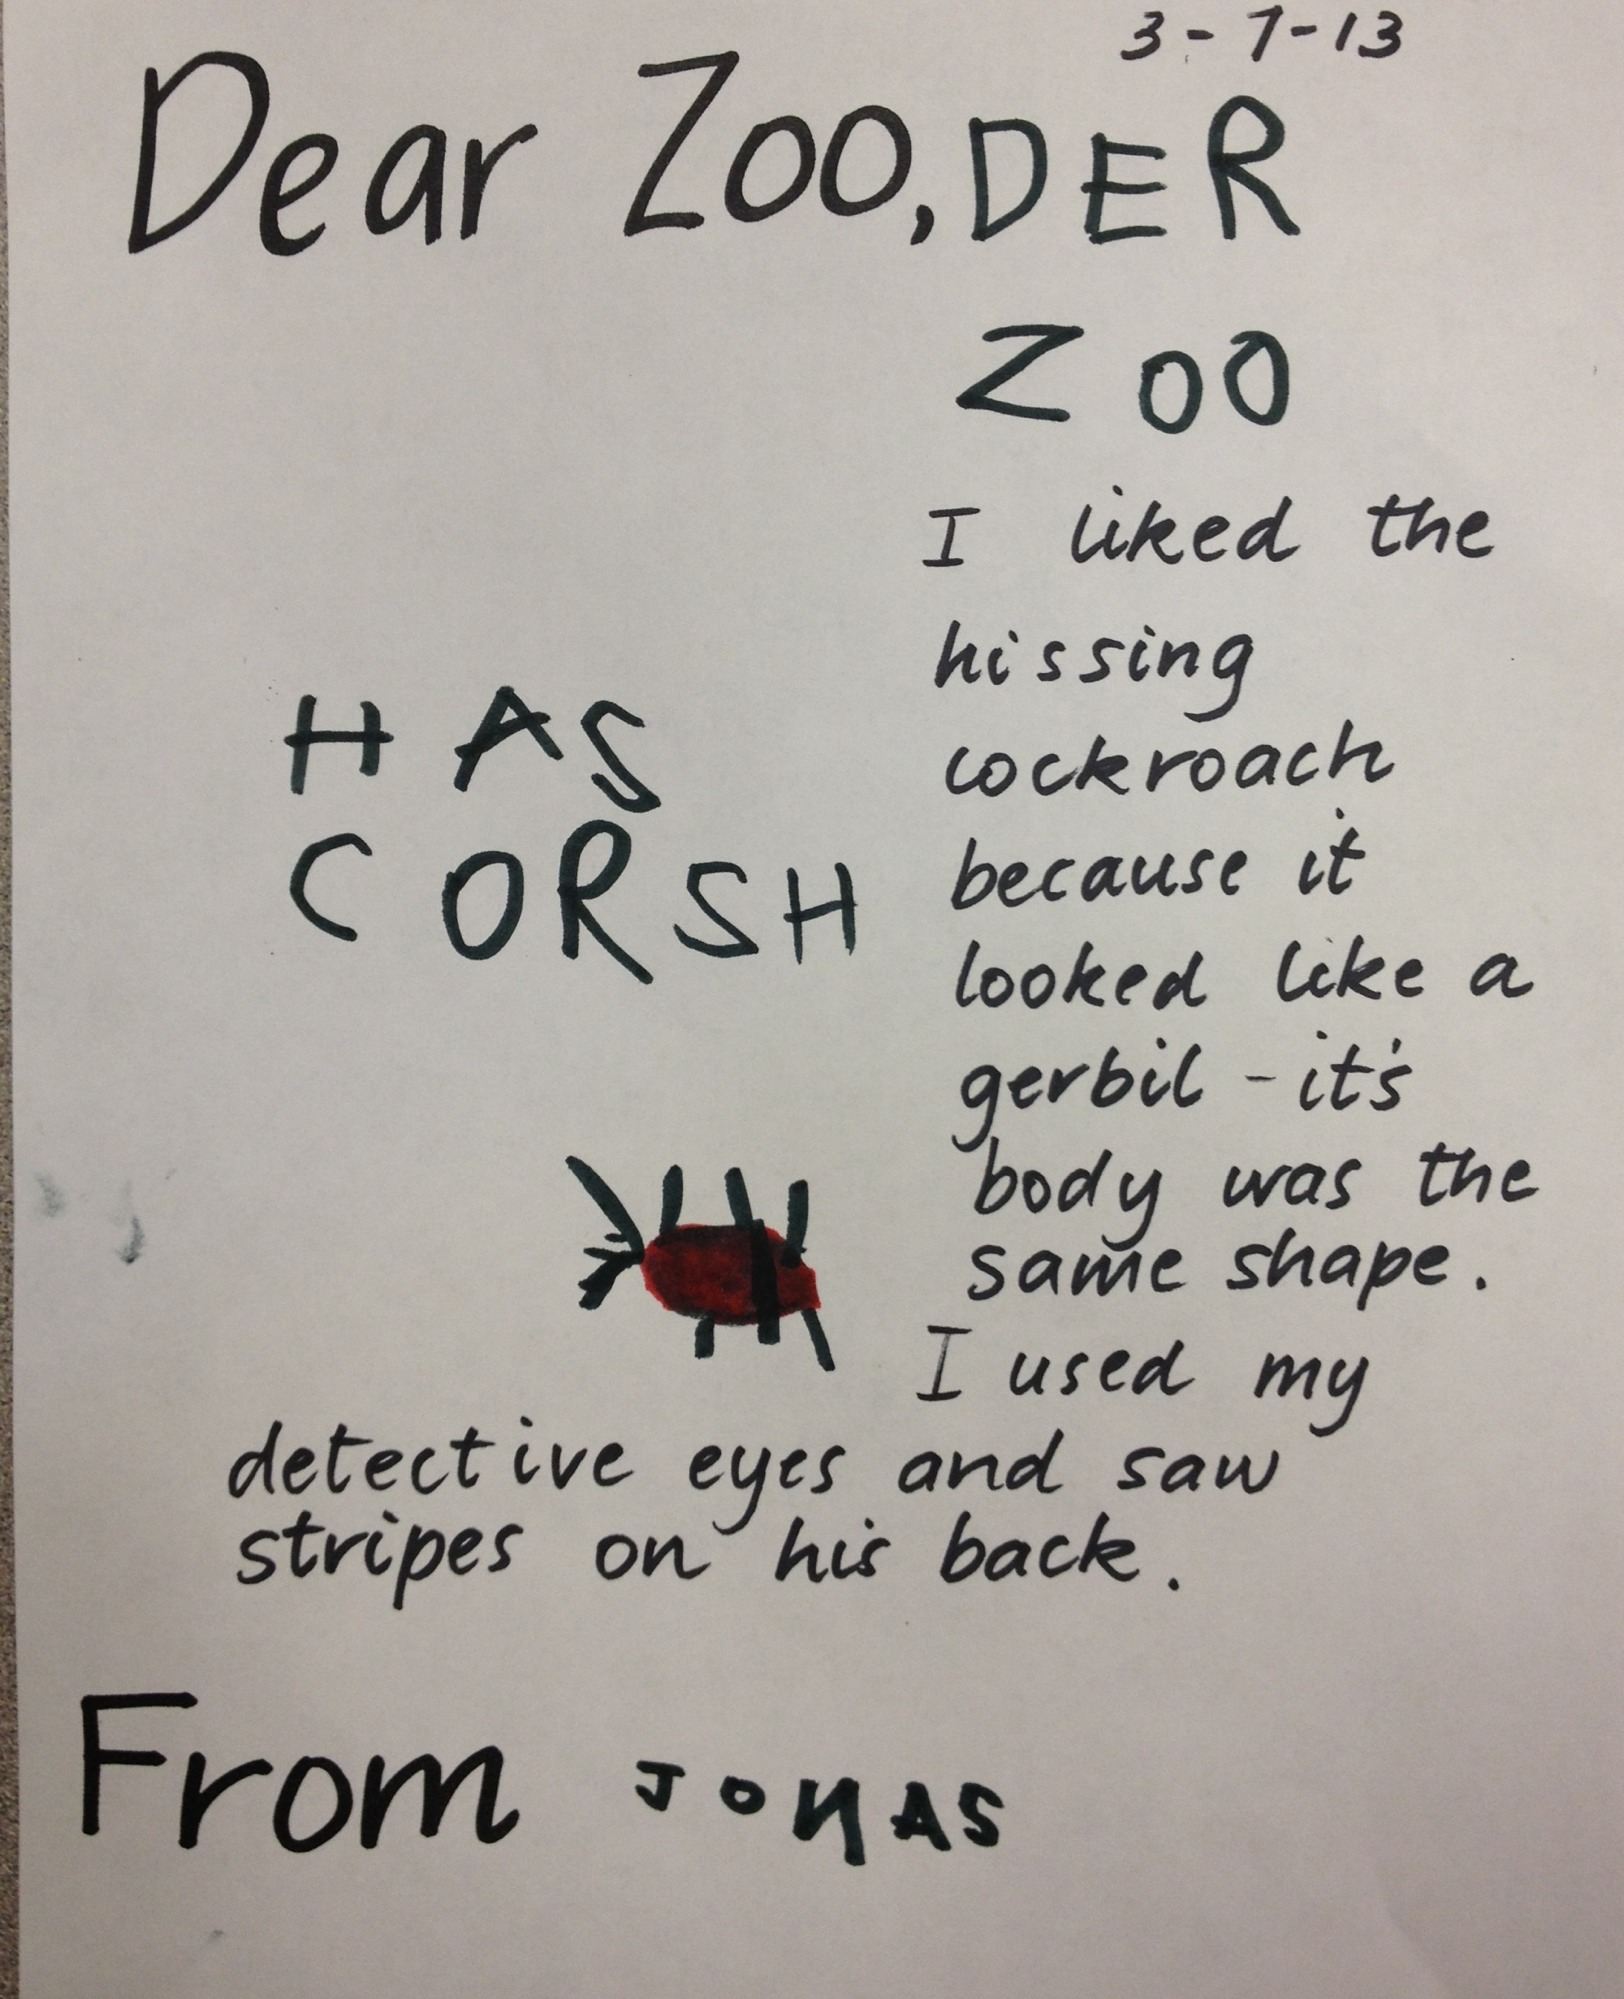 3-7-13
Dear Zoo, DER
ZOO
I liked the
hissing
HAS
cockroach
CORSH
because it
looked like a
gerbil - it's
body was the
same shape.
I used my
detective eyes and saw
stripes on his back.
From JONAS